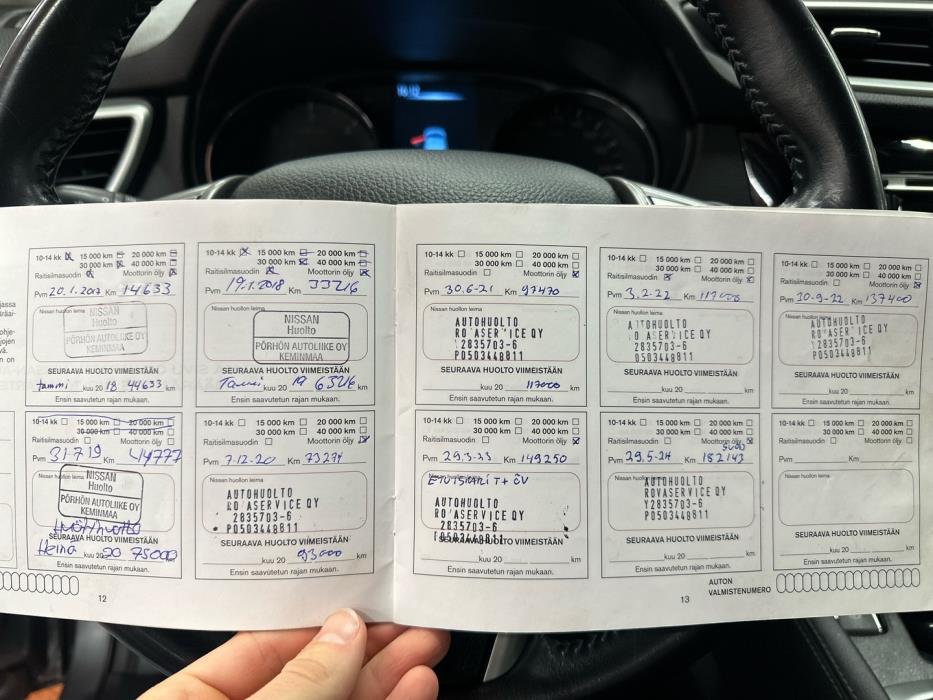 10-14 kk 15 000 km 20 000 km
30 000 km 40 000 km
Raitisilmasuodin Moottorin öljy
Pvm 20.1.2017 Km 14633
Nissan huollon leima
NISSAN
Huolto
PÖRHÖN AUTOLIIKE OY
KEMINMAA
SEURAAVA HUOLTO VIIMEISTÄÄN
tammi kuu 20 18 44633 km
Ensin saavutetun rajan mukaan.
10-14 kk 15 000 km 20 000 km
30 000 km 40 000 km
Raitisilmasuodin Moottorin öljy
Pvm 19.1.2018 Km 33216
Nissan huollon leima
NISSAN
Huolto
PÖRHÖN AUTOLIIKE OY
KEMINMAA
SEURAAVA HUOLTO VIIMEISTÄÄN
Tammi kuu 20 19 63216 km
Ensin saavutetun rajan mukaan.
10-14 kk 15 000 km 20 000 km
30 000 km 40 000 km
Raitisilmasuodin Moottorin öljy
Pvm 31.7.19 Km 44777
Nissan huollon leima
NISSAN
Huolto
PÖRHÖN AUTOLIIKE OY
KEMINMAA
SEURAAVA HUOLTO VIIMEISTÄÄN
Heinä kuu 20 20 75000
Ensin saavutetun rajan mukaan.
10-14 kk 15 000 km 20 000 km
30 000 km 40 000 km
Raitisilmasuodin Moottorin öljy
Pvm 7.12-20 Km 73274
AUTOHUOLTO
RO'ASERVICE OY
2835703-6
P0503448811
SEURAAVA HUOLTO VIIMEISTÄÄN
kuu 20 93000 km
Ensin saavutetun rajan mukaan.
12
10-14 kk 15 000 km 20 000 km
30 000 km 40 000 km
Raitisilmasuodin Moottorin öljy
Pvm 30.6-21 Km 97470
Nissan huollon leima
AUTOHUOLTO
RO'ASER'ICE OY
2835703-6
P0503448811
SEURAAVA HUOLTO VIIMEISTÄÄN
kuu 20 117000 km
Ensin saavutetun rajan mukaan.
10-14 kk 15 000 km 20 000 km
30 000 km 40 000 km
Raitisilmasuodin Moottorin öljy
Pvm 3.2-22 Km
Nissan huollon leima
2835703-6
0503448811
SEURAAVA HUOLTO VIIMEISTÄÄN
kuu 20 km
Ensin saavutetun rajan mukaan.
10-14 kk 15 000 km 20 000 km
30 000 km 40 000 km
Raitisilmasuodin Moottorin öljy
Pvm 20-9-22 Km 137400
Nissan huollon leima
AUTOHUOLTO
2835703-6
P0503448811
SEURAAVA HUOLTO VIIMEISTÄÄN
kuu 20 km
Ensin saavutetun rajan mukaan.
10-14 kk 15 000 km 20 000 km
30 000 km 40 000 km
Raitisilmasuodin Moottorin öljy
Pvm 29.3-23 Km 149250
AUTOHUOLTO
RO'ASERVICE OY
2835703-6
SEURAAVA HUOLTO VIIMEISTÄÄN
kuu 20 km
Ensin saavutetun rajan mukaan.
10-14 kk 15 000 km 20 000 km
30 000 km 40 000 km
Raitisilmasuodin Moottorin öljy
Pvm 29.5-24 Km 182143
Nissan
AUTOHUOLTO
ROVASERVICE OY
Y2835703-6
P0503448811
SEURAAVA HUOLTO VIIMEISTÄÄN
kuu 20 km
Ensin saavutetun rajan mukaan.
10-14 kk 15 000 km 20 000 km
30 000 km 40 000 km
Raitisilmasuodin Moottorin öljy
Pvm Km
Nissan huollon leima
SEURAAVA HUOLTO VIIMEISTÄÄN
kuu 20 km
Ensin saavutetun rajan mukaan.
13
AUTON
VALMISTENUMERO